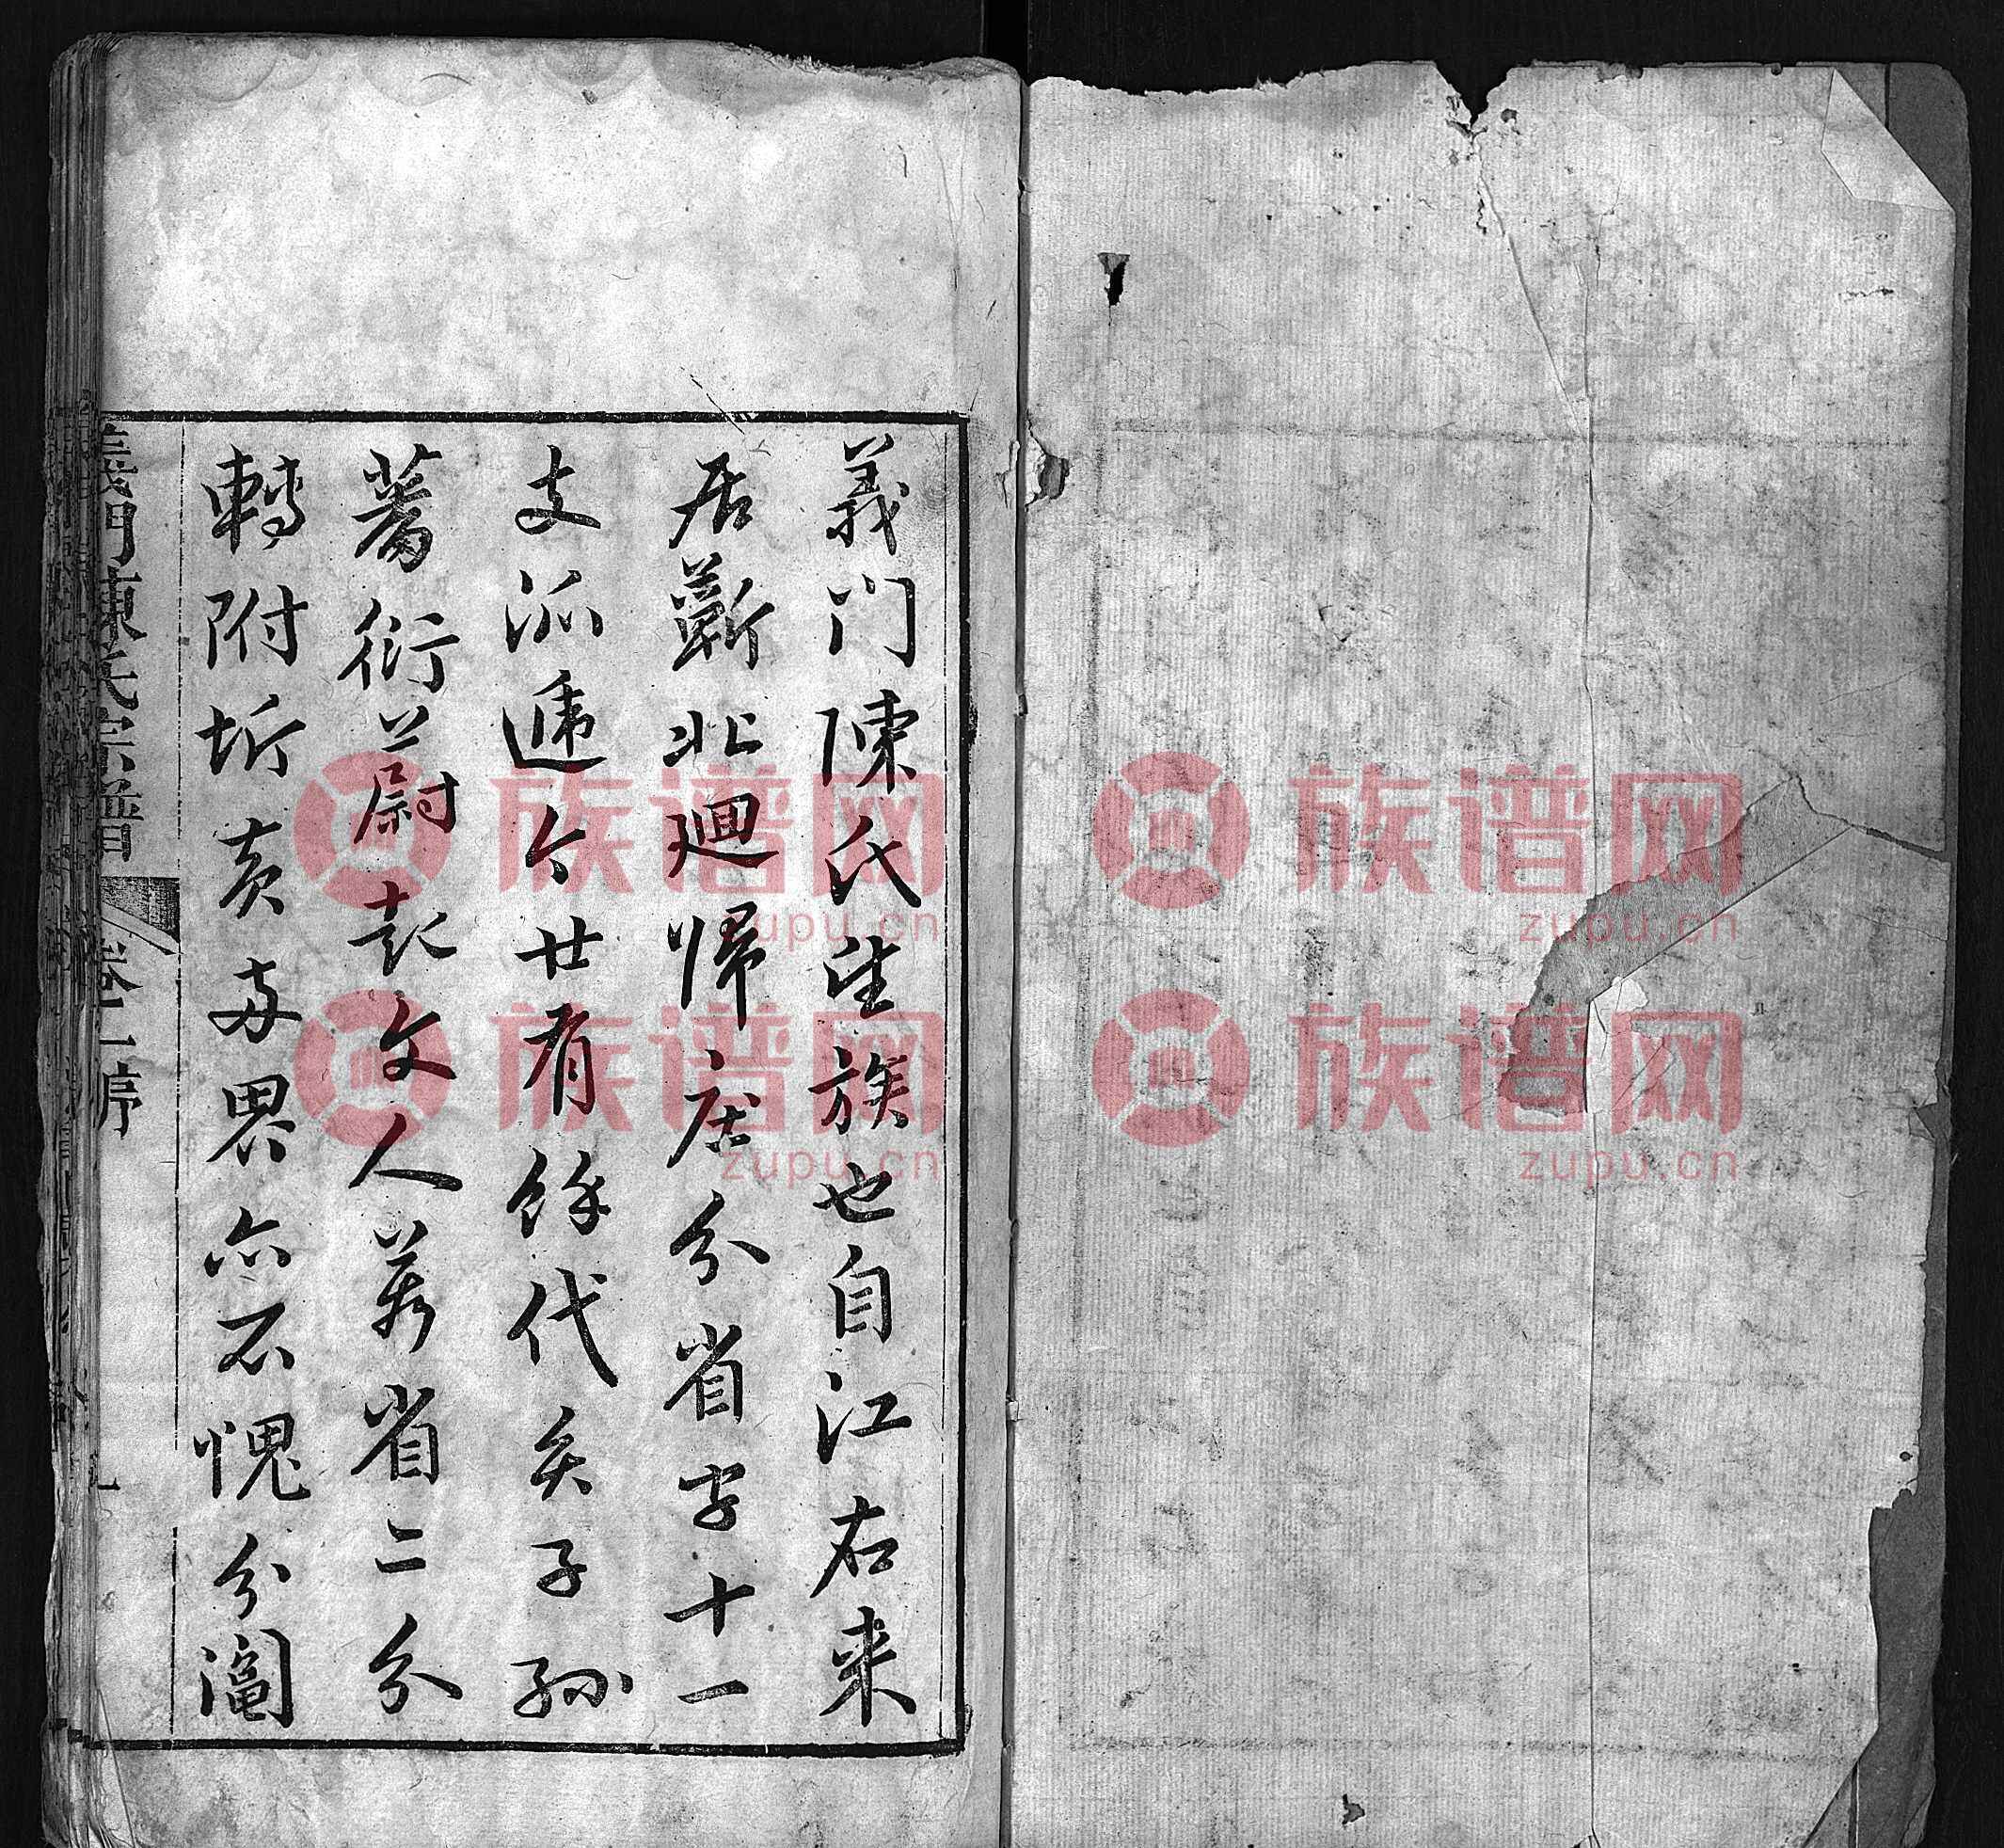 義门陳氏望族也自江右来
居蘄北迴歸庄分省字十一
支派遞今廿有餘代矣子孫
蕃衍蔚起文人莠省二分
轉附圻黄两界亦不愧分
義門陳氏宗譜 卷一序
族谱网
zupu.cn
族谱网
zupu.cn
族谱网
zupu.cn
族谱网
zupu.cn